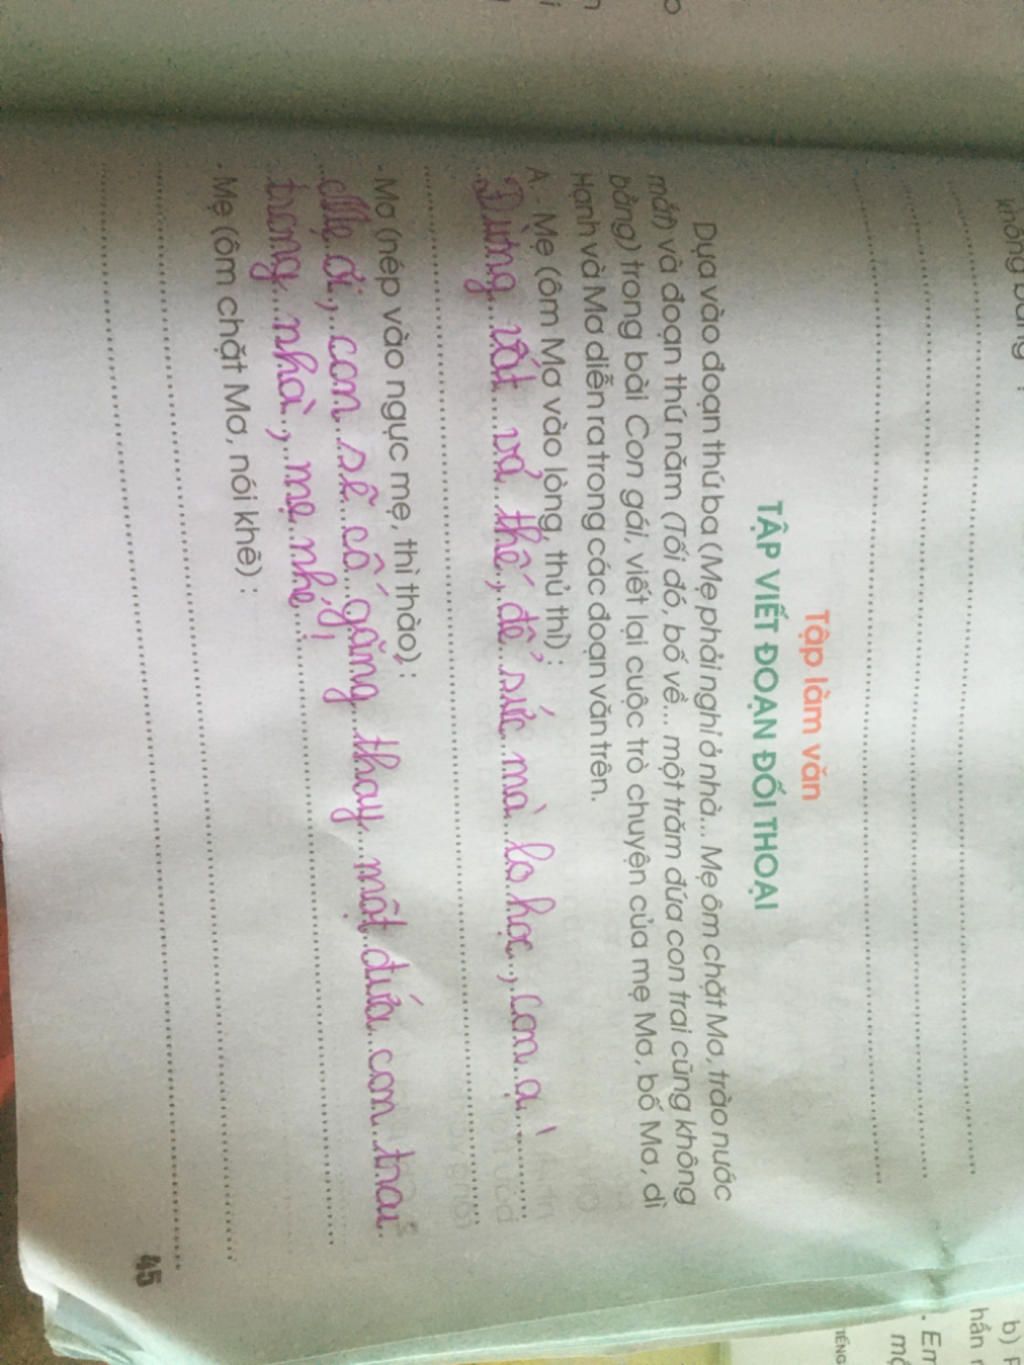 Tập làm văn
TẬP VIẾT ĐOẠN ĐỐI THOẠI
Dựa vào đoạn thứ ba (Mẹ phải nghỉ ở nhà... Mẹ ôm chặt Mơ, trào nước
mắt) và đoạn thứ năm (Tối đó, bố về... một trăm đứa con trai cũng không
bằng) trong bài Con gái, viết lại cuộc trò chuyện của mẹ Mơ, bố Mơ, dì
Hạnh và Mơ diễn ra trong các đoạn văn trên.
A - Mẹ (ôm Mơ vào lòng, thủ thỉ) :
Đừng vất vả thế, để sức mà lo học, con ạ!
- Mơ (nép vào ngực mẹ, thì thào) :
Mẹ ơi, con sẽ cố gắng thay một đứa con trai
trong nhà, mẹ nhé!
- Mẹ (ôm chặt Mơ, nói khẽ) :
45
b)
hần
. Em
TIẾNG